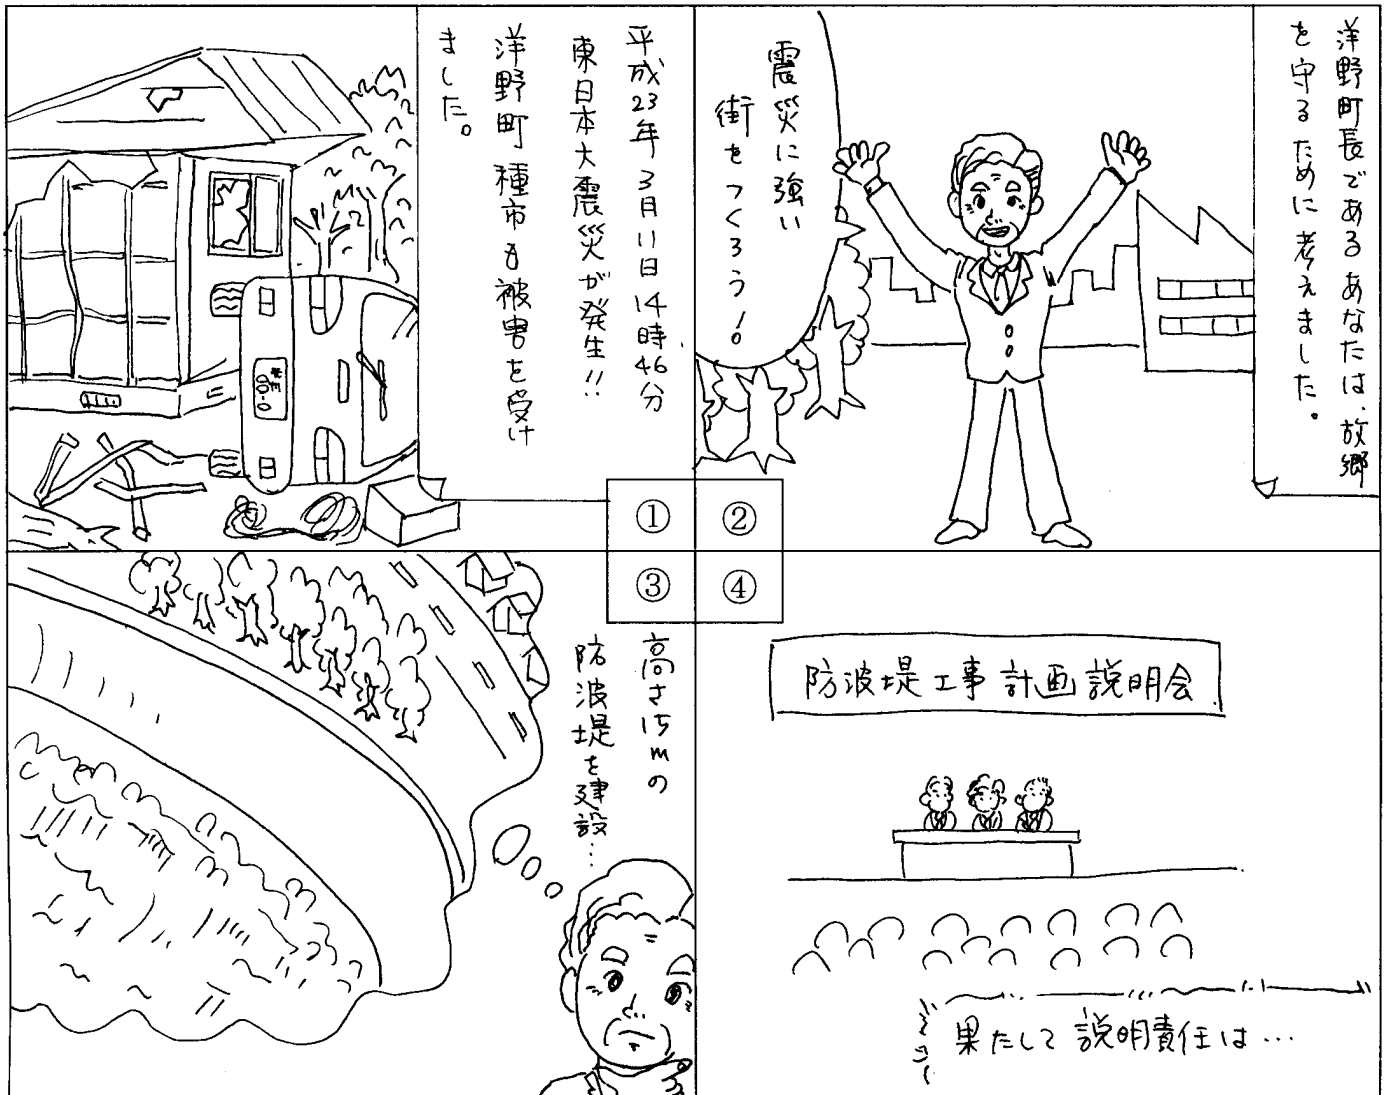 平成23年3月11日14時46分、
東日本大震災が発生!!
洋野町種市も被害を受け
ました。
①
洋野町長であるあなたは、故郷
を守るために考えました。
震災に強い
街をつくろう!
②
高さ15mの
防波堤を建設…
③
④
防波堤工事計画説明会
果たして説明責任は…